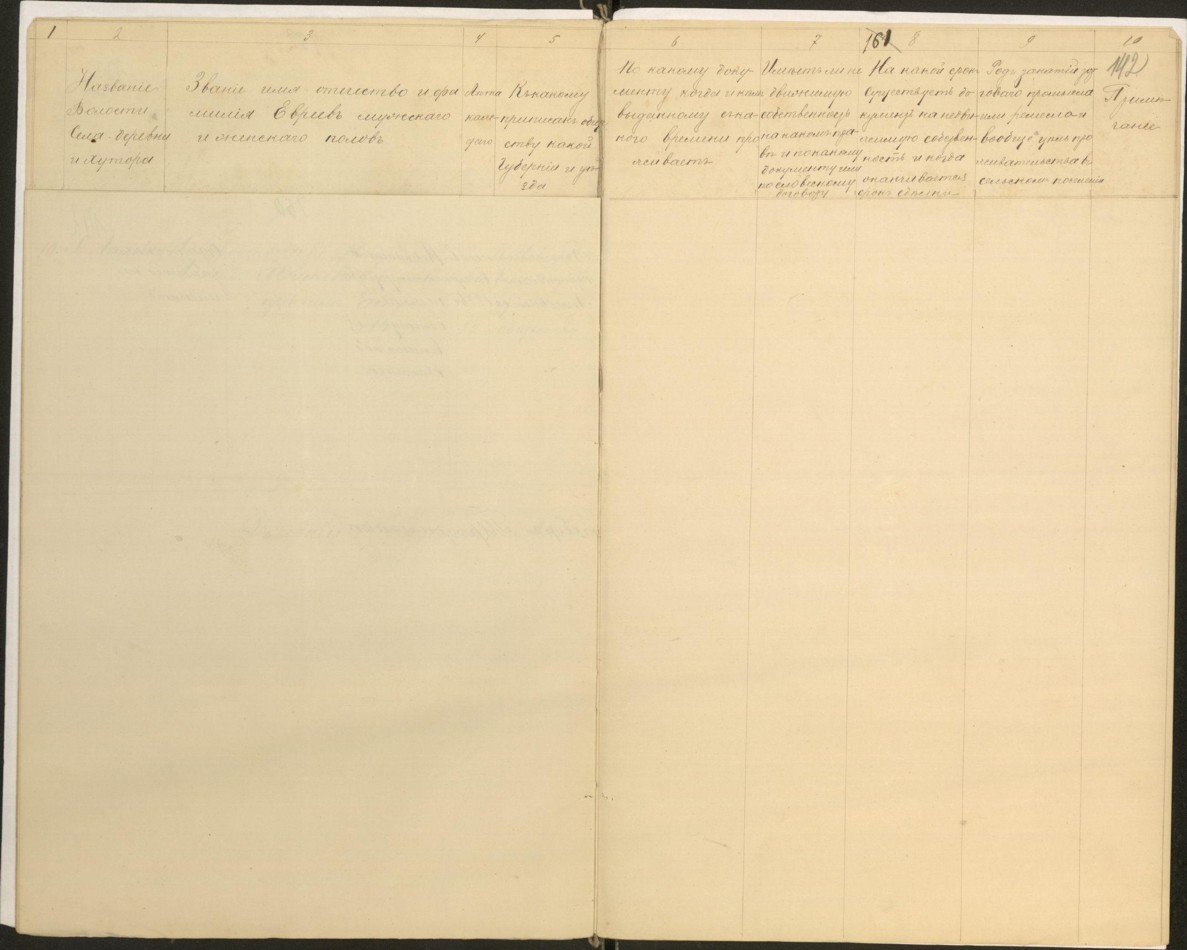 1 2 3 4 5 6 7 161 8 9 10
142
Названи
Волости
Села деревни
и Хутора
Звани имя отчество и фа
милія Евревъ мужскаго
и женскаго половъ
Лѣта
каж
даго
Къ какому
приписанъ обще
ству какой
Губерніи и уѣ
зда
По какому доку
менту когда и
выданному съ ка
кого времени про
живаетъ
Имѣетъ ли не
движимую
собственность
на какомъ пра
вѣ и по какому
документу или
по словесному
договору
На какой срокъ
существуетъ до
кументъ на недви
жимую собствен
ность и когда
оканчивается
срокъ сдѣлки
Родъ занятій
говаго промысла
или ремесла и
вообще цѣль про
живательства въ
сельскомъ поселеніи
Примѣ
чаніе